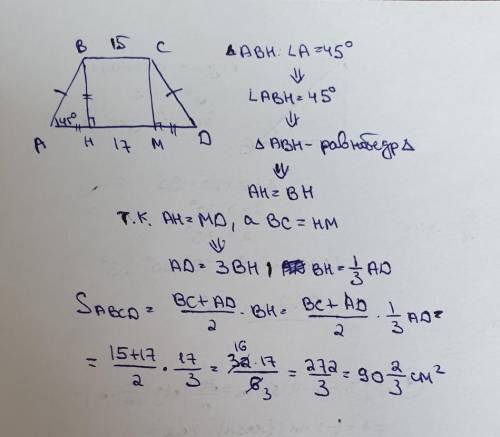 B 15 C
45°
A H 17 M D
△ABH: ∠A = 45°
⇓
∠ABH = 45°
⇓
△ABH – равнобедр △
⇓
AH = BH
т.к. AH = MD, а BC = HM
⇓
AD = 3BH, BH = 1/3 AD
S ABCD = (BC + AD)/2 · BH = (BC + AD)/2 · 1/3 AD =
= (15+17)/2 · 17/3 = 16 32 · 17/6 3 = 272/3 = 90 2/3 см²